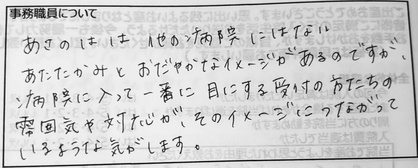 事務職員について
あさのはは 他の病院にはない
あたたかみと おだやかなイメージがあるのですが、
病院に入って一番に目にする受付の方たちの
雰囲気や対応が、そのイメージにつながって
いるような気がします。